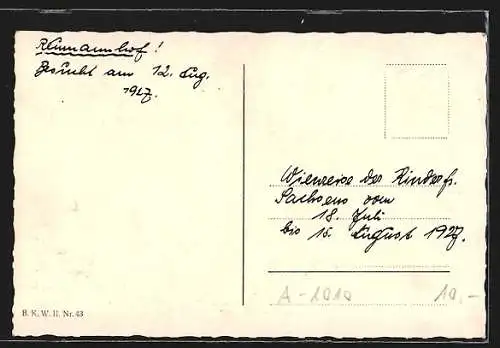 Reumannhof!
Besucht am 12. Aug.
1927.
Wienreise der Kinderfr.
Sachsens vom
18. Juli
bis 15. August 1927.
A-1010 10.-
B. K. W. II. Nr. 43